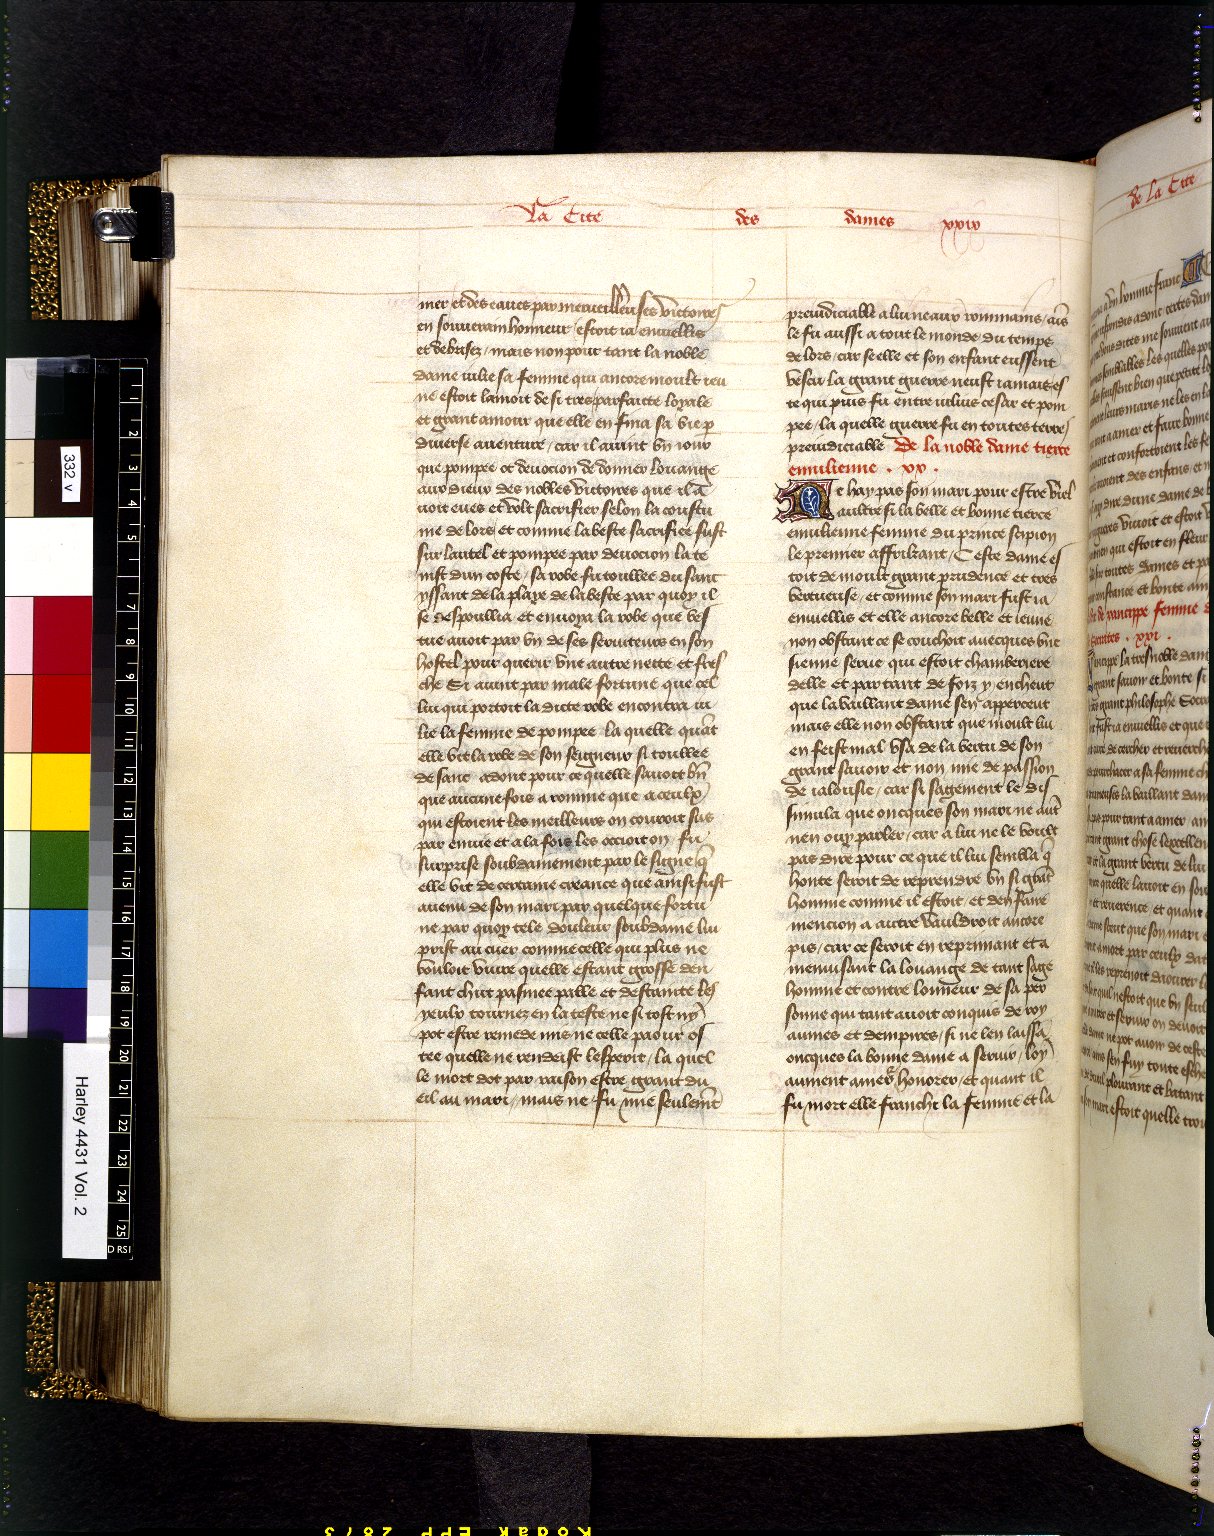 La Cite des dames xxix
mer et des eaues par merveilleuses victoires
en souverain honneur / estoit ia envellis
et debrisez / mais non pour tant la noble
dame iulie sa femme qui ancore moult ieu
ne estoit lamoit de si tres parfaicte loyale
et grant amour que elle en fina sa vie p
diverse aventure / car il avint un iour
que pompee ot devocion de donner louange
aux dieux des nobles victoires que il a
voit eues et volt sacrifier selon la coustu
me de lors et comme la beste sacrifiee fust
sur lautel et pompee par devocion la te
nist dun coste / sa robe fu toullee du sanc
yssant de la playe de la beste par quoy il
se despoullia et envoya la robe que ves
tue avoit par un de ses serviteurs en son
hostel pour querir une autre nette et fres
che Si avint par male fortune que cel
lui qui portoit la dicte robe encontra iu
lie la femme de pompee la quelle quant
elle vit la robe de son seigneur si toullee
de sanc adont pour ce quelle savoit bn
que aucune fois a romme que a ceulx
qui estoient les meilleurs on couroit sus
par envie et a la fois les occioit on / fu
surprise soubdainement par le signe q
elle vit de certaine creance que ainsi fust
avenu de son mari par quelque fortu
ne par quoy tele douleur soubdaine lui
prist au cuer comme celle qui plus ne
vouloit vivre quelle estant grosse den
fant chut pasmee palle et destainte les
yeulx tournez en la teste ne si tost ny
pot estre remede mis ne celle paour os
tee quelle ne rendeist lesperit / la quel
le mort dot par raison estre grant du
eil au mari / mais ne fu mie seulemt
preiudiciable a lui ne aux rommains / ais
le fu aussi a tout le monde du temps
de lors / car se elle et son enfant eussent
vescu la grant guerre neust iamais es
te qui puis fu entre iulius cesar et pom
pee / la quelle guerre fu en toutes terres
preiudiciable De la noble dame tierce
emulienne . xx .
Ne hay pas son mari pour estre viel
aultre si la belle et bonne tierce
emulienne femme du prince scipion
le premier affrikant / Ceste dame es
toit de moult grant prudence et tres
vertueuse / et comme son mari fust ia
envellis et elle ancore belle et ieune
non obstant ce se couchoit avecques une
sienne serve qui estoit chamberiere
delle et par tant de foiz y encheut
que la vaillant dame sen apperceut
mais elle non obstant que moult lui
en feist mal usa de la vertu de son
grant savoir et non mie de passion
de ialousie / car si sagement le dis
simula que oncques son mari ne autre
nen ouy parler / car a lui ne le voult
pas dire pour ce que il lui sembla q
honte seroit de reprendre un si grant
homme comme il estoit et den faire
mencion a autre vauldroit ancore
pis / car ce seroit en reprimant et a
menuisant la louange de tant sage
homme et contre lonneur de sa per
sonne qui tant avoit conquis de roy
aumes et dempires / si ne len laissa
oncques la bonne dame a servir / loy
aument amer honorer / et quant il
fu mort elle franchi la femme et la
de la Cite
de xancippe femme
socrates . xxi .
332 v
Harley 4431 Vol. 2
1
2
3
4
5
7
8
9
10
11
12
13
14
15
16
17
18
19
20
21
22
23
24
25
Kodak EPP 2873